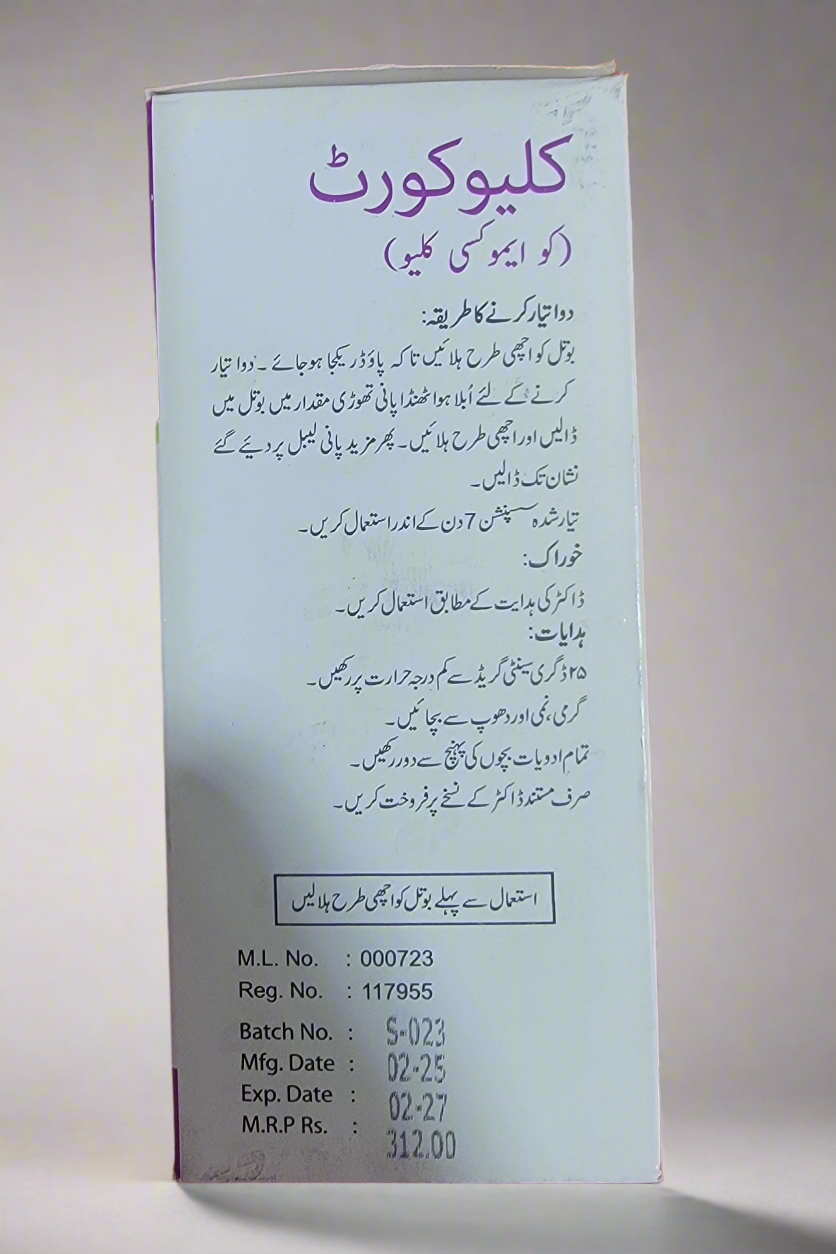 کلیوکورٹ
(کو ایموکسی کلیو)
دوا تیار کرنے کا طریقہ:
بوتل کو اچھی طرح ہلائیں تا کہ پاؤڈر یکجا ہو جائے ۔ دوا تیار
کرنے کے لئے اُبلا ہوا ٹھنڈا پانی تھوڑی مقدار میں بوتل میں
ڈالیں اور اچھی طرح ہلائیں۔ پھر مزید پانی لیبل پر دیئے گئے
نشان تک ڈالیں۔
تیار شدہ سسپنشن 7 دن کے اندر استعمال کریں۔
خوراک:
ڈاکٹر کی ہدایت کے مطابق استعمال کریں۔
ہدایات:
۲۵ ڈگری سینٹی گریڈ سے کم درجہ حرارت پر رکھیں۔
گرمی، نمی اور دھوپ سے بچائیں۔
تمام ادویات بچوں کی پہنچ سے دور رکھیں۔
صرف مستند ڈاکٹر کے نسخے پر فروخت کریں۔
استعمال سے پہلے بوتل کو اچھی طرح ہلالیں
M.L. No. : 000723
Reg. No. : 117955
Batch No. : S-023
Mfg. Date : 02-25
Exp. Date : 02-27
M.R.P Rs. : 312.00